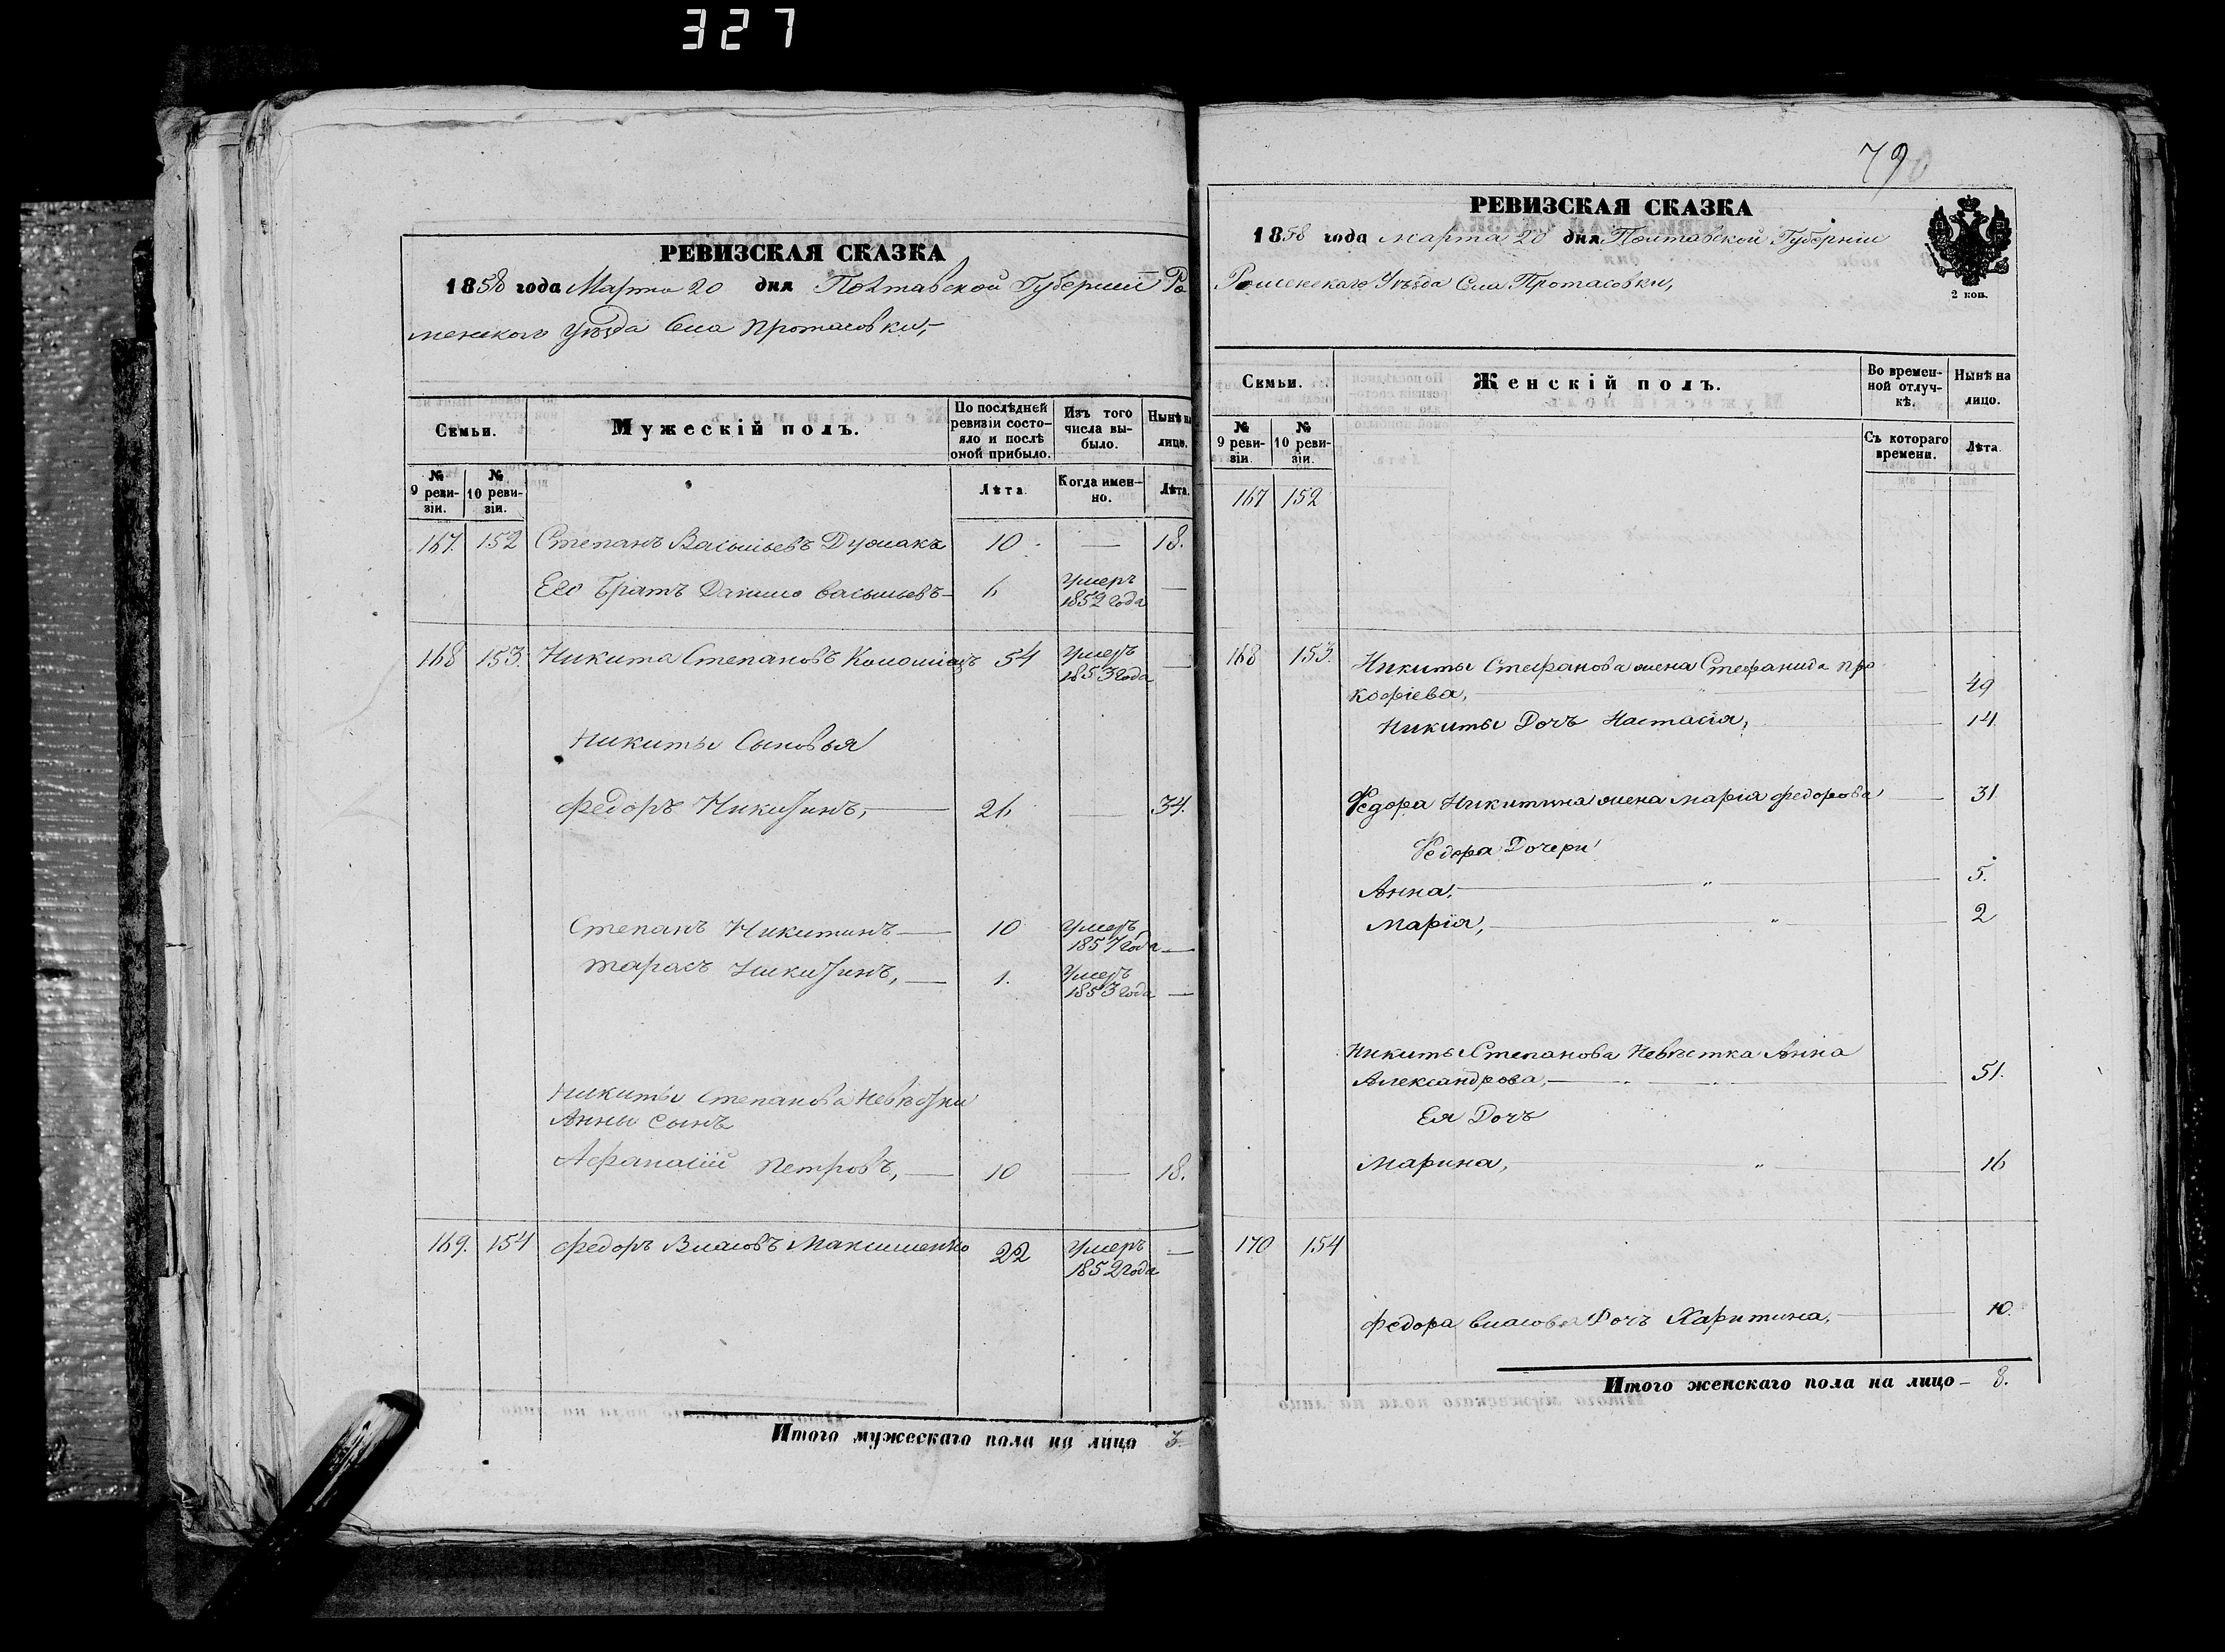 327
РЕВИЗСКАЯ СКАЗКА
1858 года Марта 20 дня Полтавской Губерніи Ро
менского уѣзда Села Протасовки,
Семьи.
Мужескій полъ.
По послѣдней ревизіи состояло и послѣ оной прибыло.
Изъ того числа выбыло.
Нынѣ на лицо.
№ 9 ревизіи.
№ 10 ревизіи.
Лѣта
Когда именно.
Лѣта.
167. 152 Степанъ Васильевъ Думакъ 10 — 18.
Его Братъ Данило васильевъ 6 Умеръ 1852 года —
168 153. Никита Степановъ Коломіецъ 54 Умеръ 1853 года —
Никиты Сыновья
Федоръ Никитинъ, — 26 — 34.
Степанъ Никитинъ — 10 Умеръ 1857 года —
Тарасъ Никитинъ, — 1. Умеръ 1853 года —
Никиты Степанова Невѣстки
Анны Сынъ
Афанасій Петровъ, — 10 — 18.
169. 154 Федоръ Власовъ Максименко 22 Умеръ 1852 года —
Итого мужескаго пола на лицо 3.
79
РЕВИЗСКАЯ СКАЗКА
1858 года Марта 20 дня Полтавской Губерніи
Роменскаго Уѣзда Села Протасовки,
2 коп.
Семьи.
Женскій полъ.
Во временной отлучкѣ.
Нынѣ на лицо.
№ 9 ревизіи.
№ 10 ревизіи.
Съ котораго времени.
Лѣта.
167 152
168 153. Никиты Стефанова жена Стефанида про
кофіева, 49
Никиты Дочъ Настасія, 14.
Федора Никитина жена марія федорова 31
Федора Дочери
Анна, — " — 5.
Марія, — " — 2
Никиты Степанова Невѣстка Анна
Александрова, — 51.
Ея Дочъ
Марина, " — 16
170 154
Федора власова Дочъ Харитина, — 10.
Итого женскаго пола на лицо — 8.